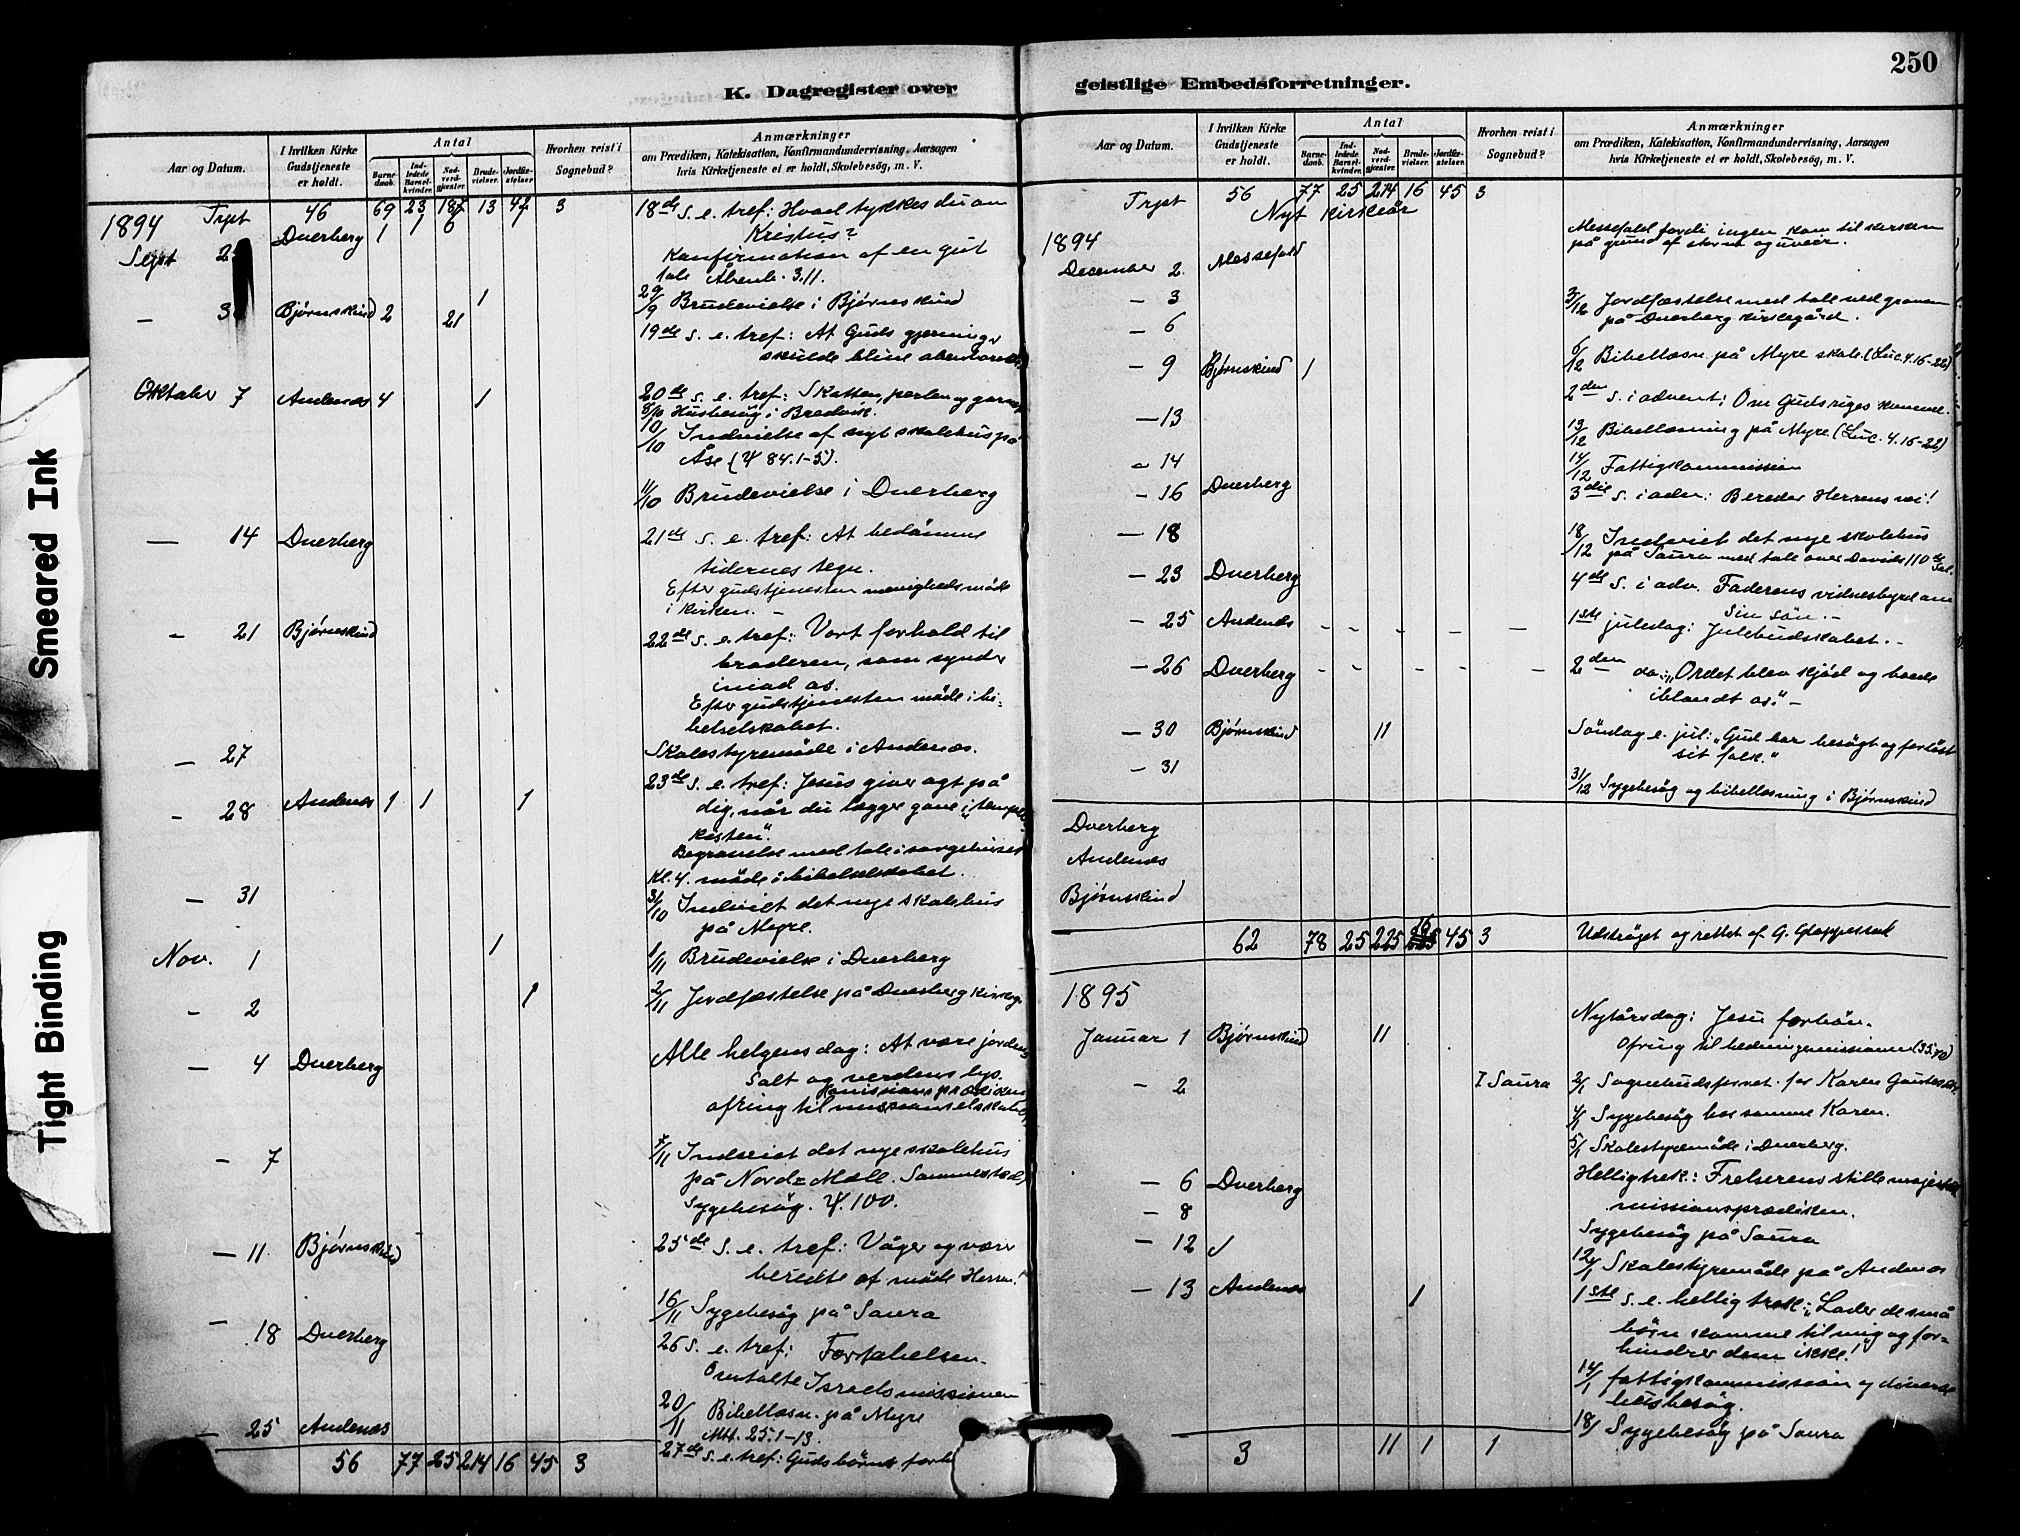 250
K. Dagregister over
geistlige Embedsforretninger.
Aar og Datum.
I hvilken Kirke Gudstjeneste er holdt.
Antal
Barnedaab.
Indledede Barselkvinder.
Nadverdgjæster.
Brudevielser.
Jordfæstelser.
Hvorhen reist i Sognebud?
Anmærkninger
om Prædiken, Katekisation, Konfirmandundervisning, Aarsagen
hvis Kirketjeneste ei er holdt, Skolebesög, m. V.
1894
46 69 23 13 3
18de s. e. tref: Hvad tykkes du om
Kristus?
Sept Dverberg 1 1 6
Konfirmation af en gut
tale Åbenb. 3.11.
1 29/9 Brudevielse i Bjørnskind
— Bjørnskind 2 21
19de s. e. tref: At Guds gjerninger
skulde blive
Oktober 7 Andenæs 4 1
20de s. e. tref: Skatten, perlen og garnet
8/10 Husbesøg i Bredvik.
10/10 Indvielse af nyt skolehus på
Åse (Ψ 84.1-5).
11/10 Brudevielse i Dverberg
— 14 Dverberg
21de s. e. tref: At bedömme
tidernes tegn.
Efter gudstjenesten menighedsmøde
i kirken. —
— 21 Bjørnskind
22de s. e. tref: Vort forhold til
broderen, som synder
imod os.
Efter gudstjenesten møde i bi-
belselskabet.
— 27 Skolestyremøde i Andenæs.
— 28 Andenæs 1 1 1
23de s. e. tref: Jesus giver agt på
dig, når du lægger gave i „tempel
kisten“.
Begravelse med tale i sørgehuset
Kl. 4. møde i bibelselskabet.
— 31 31/10 Indviet det nye skolehus
på Myre.
Nov. 1 1 1/11 Brudevielse i Dverberg
— 2 1 2/11 Jordfæstelse på Dverberg
— 4 Dverberg
Alle helgens dag: At være jordens
salt og verdens lys.
missionsprædiken
ofring til
— 7 7/11 Indviet det nye skolehus
på Nord=Mæle. Sammesteds
Sygebesøg. Ψ. 100.
— 11 Bjørnskind
25de s. e. tref: Våger og være
beredte at møde Herren!
16/11 Sygebesøg på Saura
— 18 Dverberg
26 s. e. tref: Fortabelsen.
Omtalte Israelsmissionen
20/11 Bibellæsn. på Myre
Mtt. 25.1-13.
— 25 Andenæs
27de s. e. tref: Guds børns
56 77 25 214 16 45 3
Aar og Datum.
I hvilken Kirke Gudstjeneste er holdt.
Antal
Barnedaab.
Indledede Barselkvinder.
Nadverdgjæster.
Brudevielser.
Jordfæstelser.
Hvorhen reist i Sognebud?
Anmærkninger
om Prædiken, Katekisation, Konfirmandundervisning, Aarsagen
hvis Kirketjeneste ei er holdt, Skolebesög, m. V.
56 77 25 214 16 45 3
Nyt kirkeår
1894
December 2. Messefald
Messefald fordi ingen kom til kirken
på grund af storm og uveir.
— 3 3/12 Jordfæstelse med tale ved graven
på Dverberg kirkegård.
— 6 6/12 Bibellæsn. på Myre skole (Luc. 4.16-22)
— 9 Bjørnskind 1
2den s. i advent: Om Guds riges komme.
— 13 13/12 Bibellæsning på Myre (Luc. 4.16-22)
— 14 14/12 Fattigkommission
— 16 Dverberg
3die s. i adv.: Bereder Herrens vei!
— 18 18/12 Indviet det nye skolehus
på Saura med tale over Davids 110de Sal.
— 23 Dverberg
4de s. i adv. Faderens vidnesbyrd om
Sin søn. —
— 25 Andenæs – – – – –
1ste juledag: Julebudskabet. —
— 26 Dverberg – – – – –
2den do: „Ordet blev kjød og boede
iblandt os.“ —
— 30 Bjørnskind 11
Søndag e. jul: „Gud har besøgt og forløst
sit folk.“
— 31 31/12 Sygebesøg og bibellæsning i Bjørnskind
Dverberg
Andenæs
Bjørnskind
62 78 25 225 16 45 3
Udstrøget og rettet af G.
1895
Januar 1 Bjørnskind 11
Nytårsdag: Jesu forbøn.
Ofring til hedningemissionen
— 2 I Saura 2/1 Sognebudsforret. for Karen
4/1 Sygebesøg hos samme Karen.
5/1 Skolestyremøde i Dverberg.
— 6 Dverberg
Helligtrek.: Frelserens stille
missionsprædiken.
— 8 Sygebesøg på Saura
— 12 12/1 Skolestyremøde på Andenæs
— 13 Andenæs 1
1ste s. e. helligtrek: „Lader de små
børn komme til mig og for-
hindrer dem ikke!“
14/1 fattigkommission og diverse
husbesøg.
18/1 Sygebesøg på Saura
3 11 1 1
Smeared Ink
Tight Binding